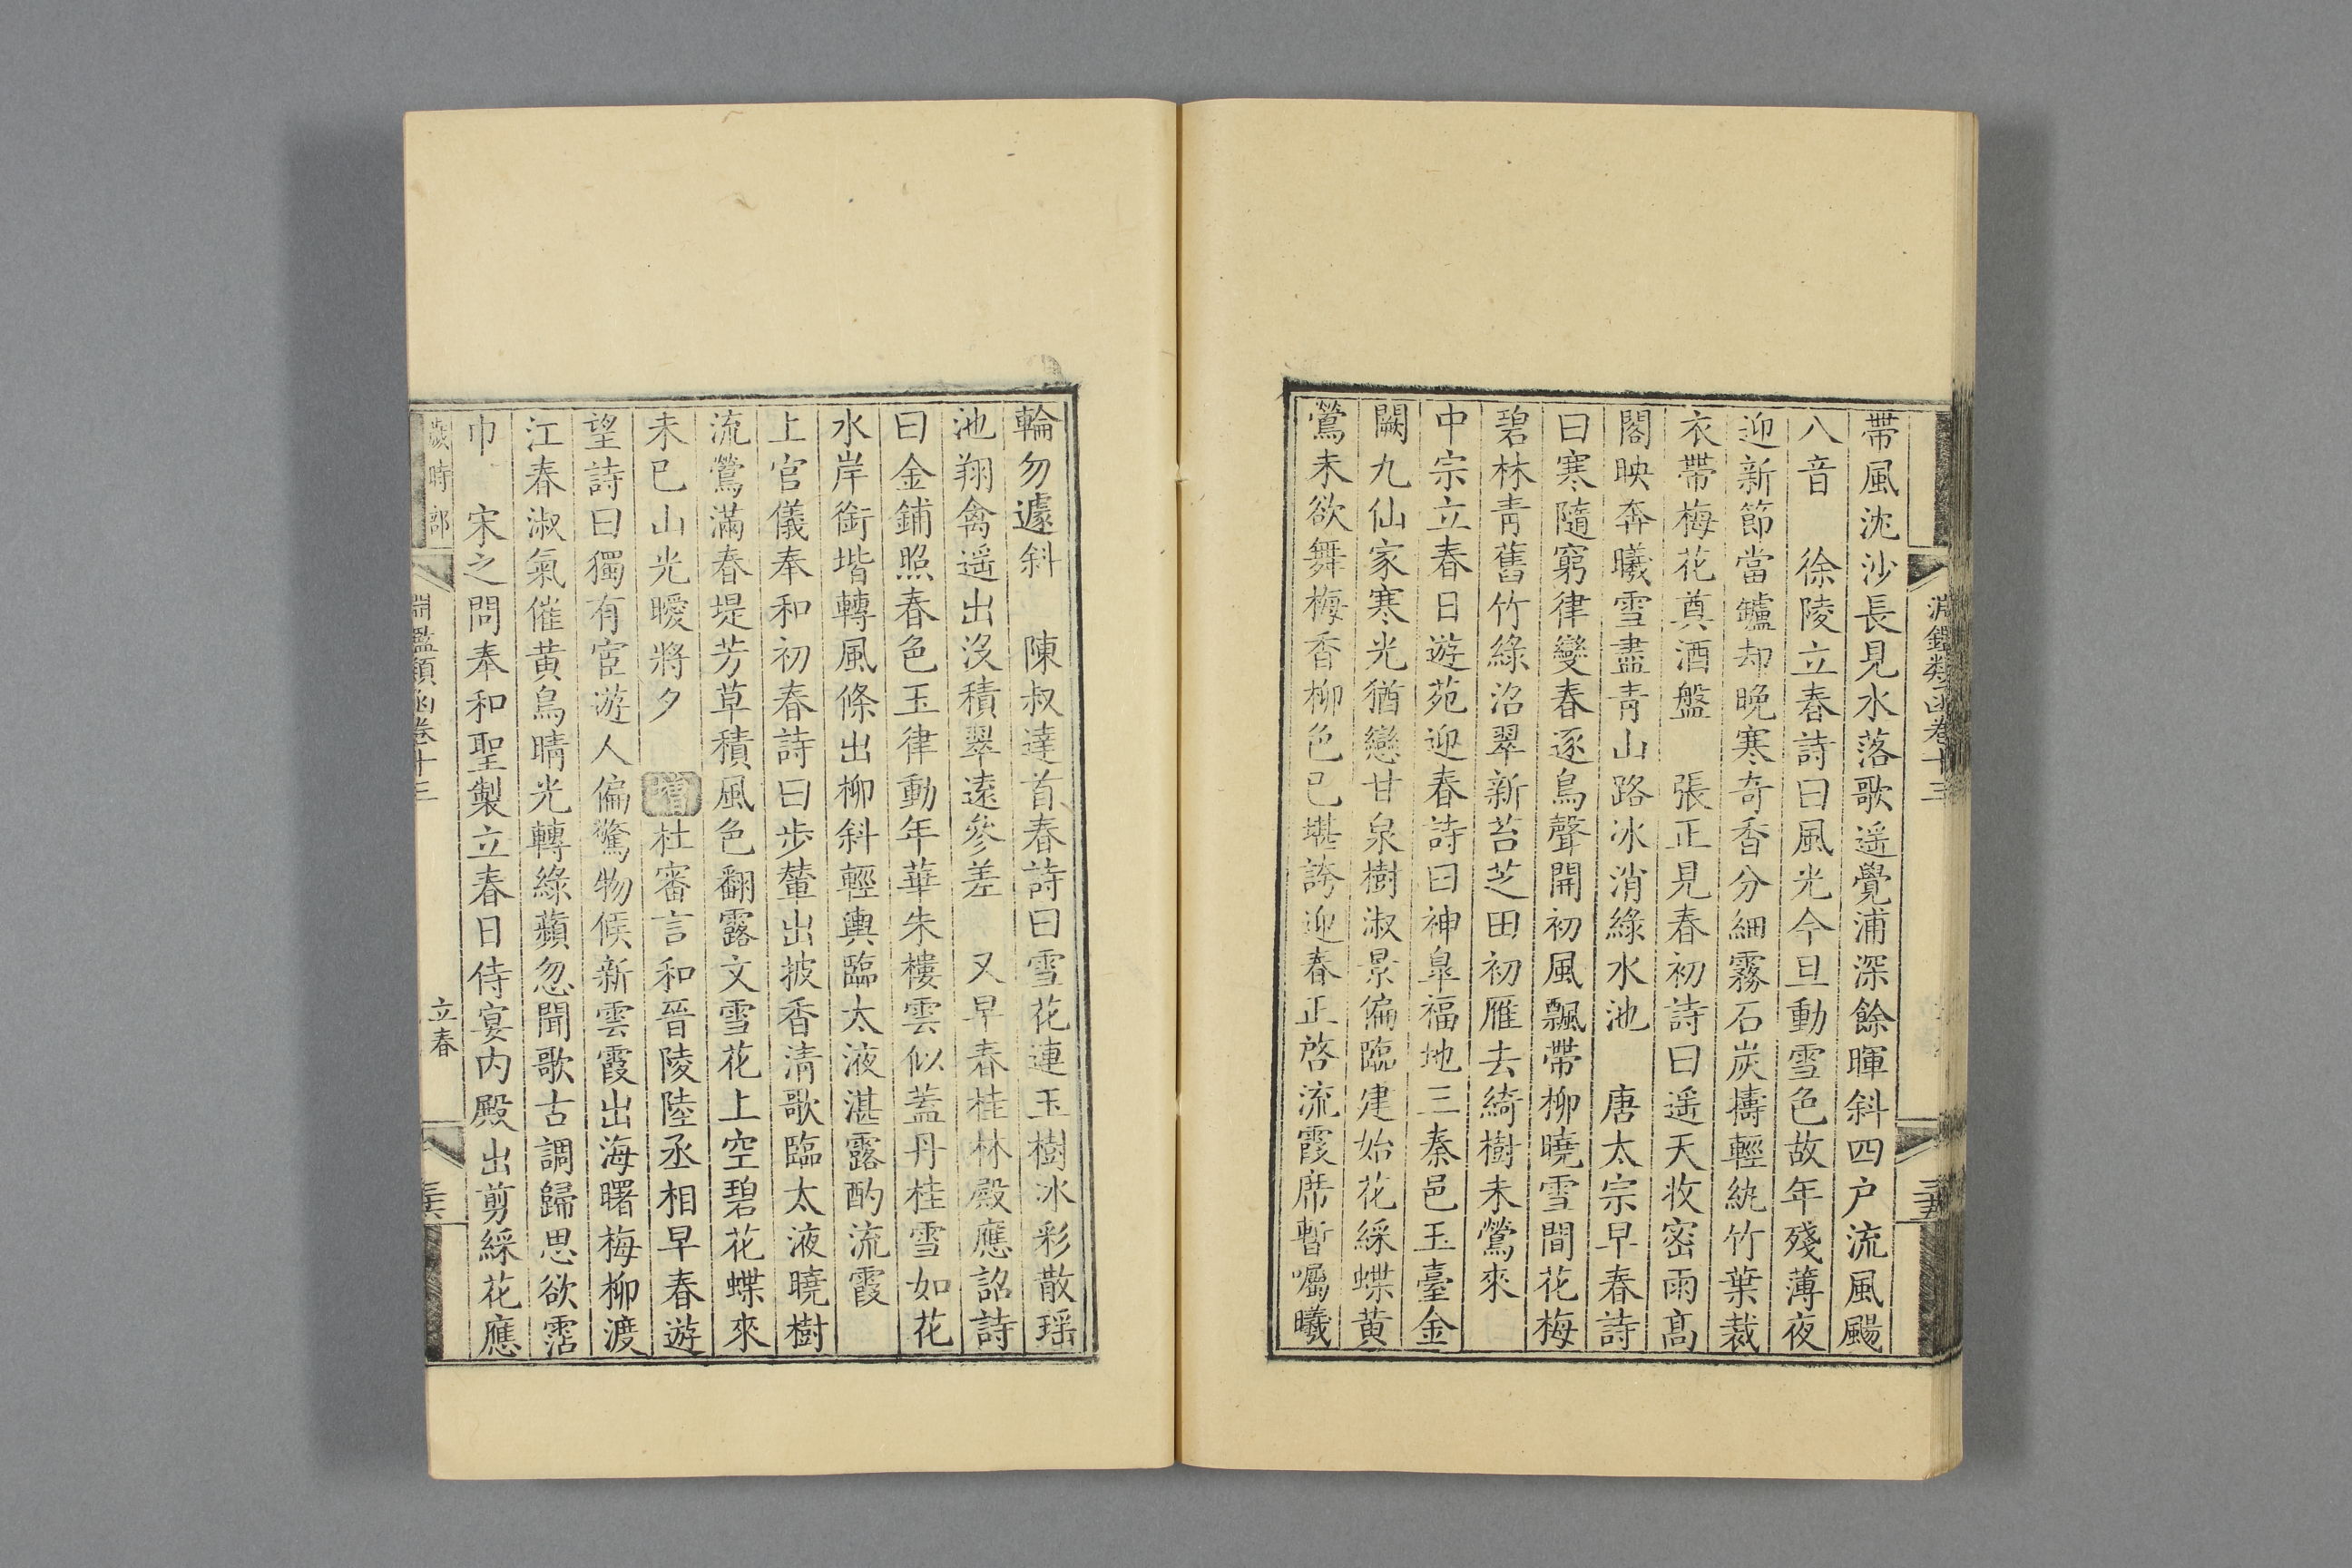 淵鑑類函卷十三
三五
帶風沈沙長見水落歌遥覺浦深餘暉斜四户流風颺
八音　徐陵立春詩曰風光今旦動雪色故年殘薄夜
迎新節當鑪却晚寒奇香分細霧石炭擣輕紈竹葉裁
衣帶梅花奠酒盤　張正見春初詩曰遥天收密雨高
閣映奔曦雪盡青山路冰消綠水池　唐太宗早春詩
曰寒隨窮律變春逐鳥聲開初風飄帶柳曉雪間花梅
碧林青舊竹綠沼翠新苔芝田初雁去綺樹未鶯來
中宗立春日遊苑迎春詩曰神臯福地三秦邑玉臺金
闕九仙家寒光猶戀甘泉樹淑景偏臨建始花綵蝶黃
鶯未欲舞梅香柳色已堪誇迎春正啓流霞席暫囑曦
輪勿遽斜　陳叔達首春詩曰雪花連玉樹冰彩散瑶
池翔禽遥出沒積翠遠參差　又早春桂林殿應詔詩
曰金鋪照春色玉律動年華朱樓雲似蓋丹桂雪如花
水岸銜堦轉風條出柳斜輕輿臨太液湛露酌流霞
上官儀奉和初春詩曰步輦出披香清歌臨太液曉樹
流鶯滿春堤芳草積風色翻露文雪花上空碧花蝶來
未已山光曖將夕　增杜審言和晉陵陸丞相早春遊
望詩曰獨有宦遊人偏驚物候新雲霞出海曙梅柳渡
江春淑氣催黃鳥晴光轉綠蘋忽聞歌古調歸思欲霑
巾　宋之問奉和聖製立春日侍宴内殿出剪綵花應
歲時部
淵鑑類函卷十三
立春
三六